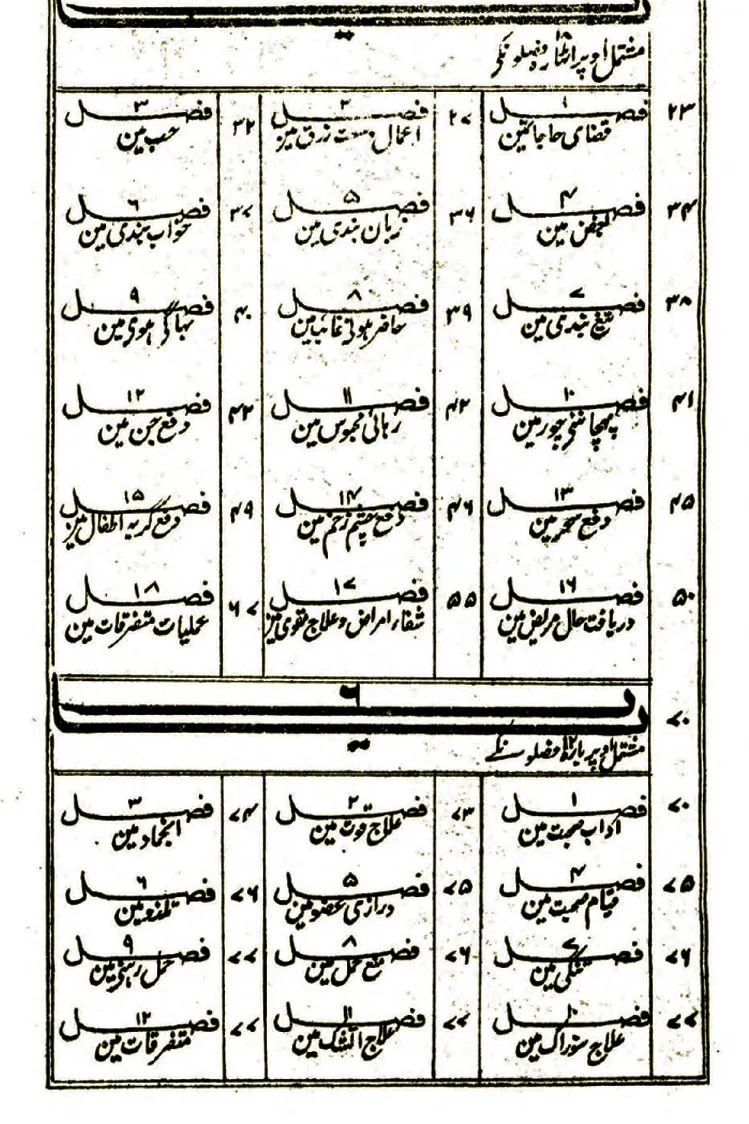 مشتمل اوپر اٹھارہ فصلونکے
۲۳ فصل ۱ ۲۷ فصل ۲ ۳۲ فصل ۳
قضای حاجات مین اعمال وسعت رزق مین حب مین
۳۴ فصل ۴ ۳۶ فصل ۵ ۳۷ فصل ۶
بغض مین زبان بندی مین خواب بندی مین
۳۸ فصل ۷ ۳۹ فصل ۸ ۴۰ فصل ۹
تیغ بندی مین حاضر ہونی غائب مین بھاگی ہوی مین
۴۱ فصل ۱۰ ۴۲ فصل ۱۱ ۴۲ فصل ۱۲
پہچاننی چور مین رہائی محبوس مین دفع جن مین
۴۵ فصل ۱۳ ۴۶ فصل ۱۴ ۴۹ فصل ۱۵
دفع سحر مین دفع چشم زخم مین دفع گریہ اطفال مین
۵۰ فصل ۱۶ ۵۵ فصل ۱۷ ۶۷ فصل ۱۸
دریافت حال مریض مین شفاء امراض و علاج مقوی مین عملیات متفرقات مین
۷۰ باب ۶
مشتمل اوپر بارہ فصلونکے
۷۰ فصل ۱ ۷۳ فصل ۲ ۷۴ فصل ۳
اداب صحبت مین علاج قوت مین انجماد مین
۷۵ فصل ۴ ۷۵ فصل ۵ ۷۶ فصل ۶
قیام صحبت مین درازی عضو مین تلذذ مین
۷۶ فصل ۷ ۷۶ فصل ۸ ۷۷ فصل ۹
تنگی مین منع حمل مین حمل رہنی مین
۷۷ فصل ۱۰ ۷۷ فصل ۱۱ ۷۷ فصل ۱۲
علاج سوزاک مین علاج اتشک مین متفرقات مین